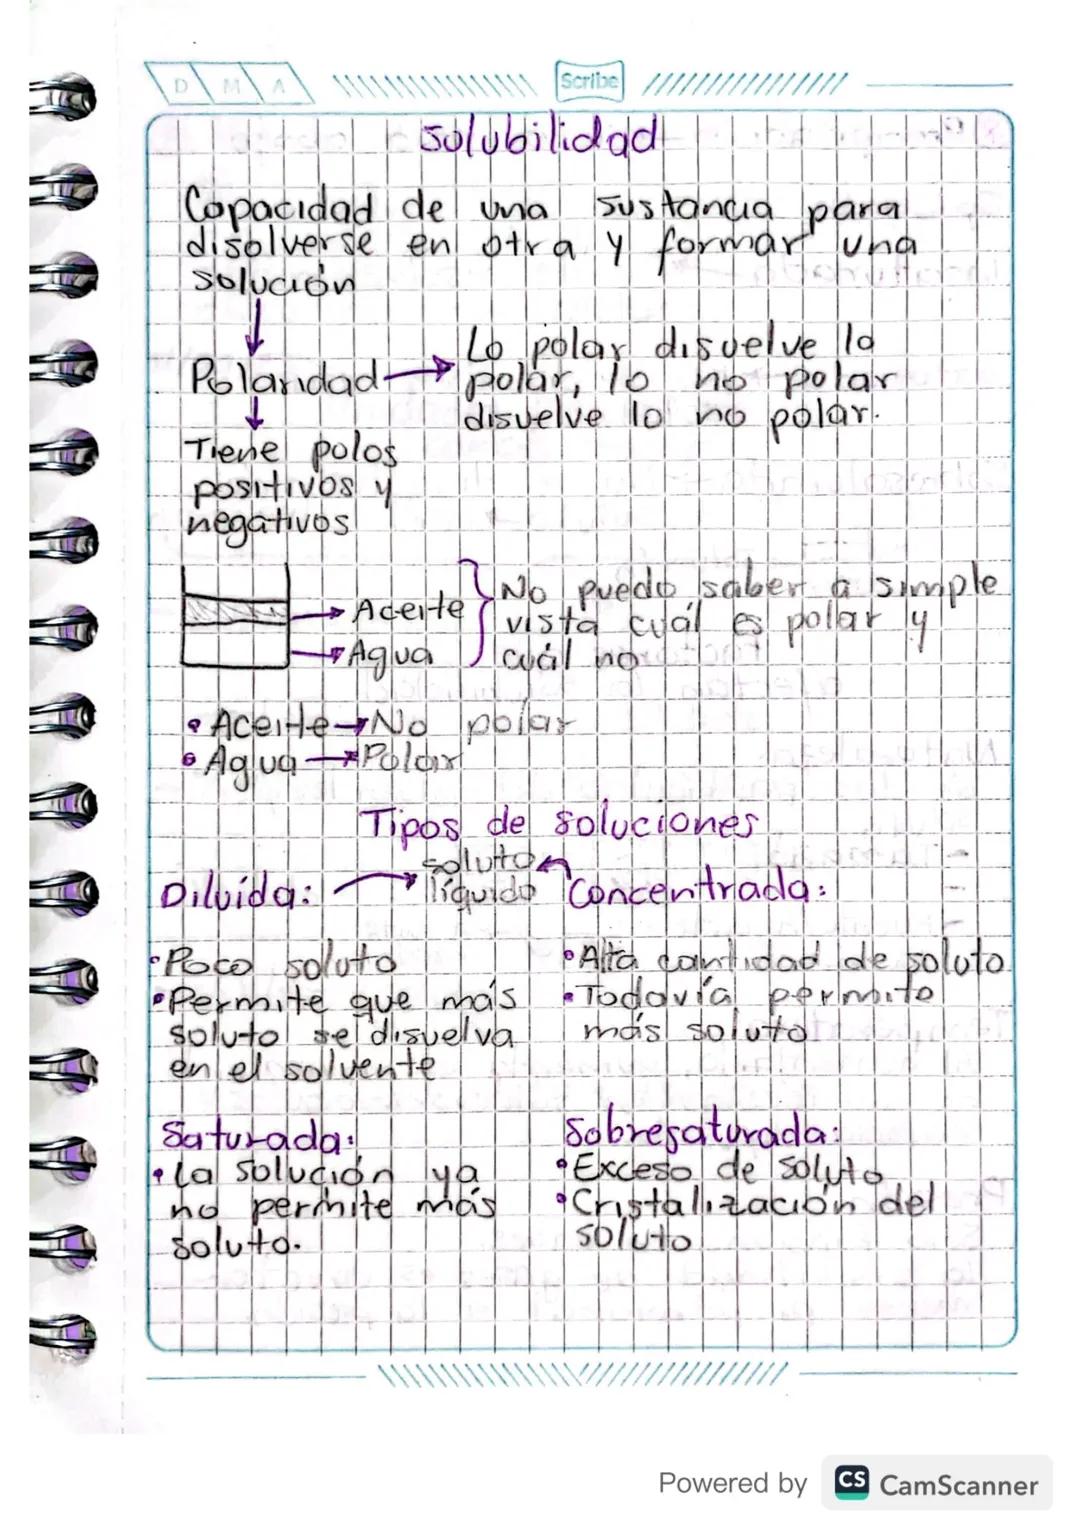 D M A
Scribe
Solubilidad
Capacidad de una sustancia para
disolverse en otra y formar una
solución
Polaridad → Lo polar disuelve lo
polar, lo no polar
disuelve lo no polar.
Tiene polos
positivos y
negativos
→ Aceite
→ Agua
No puedo saber a simple
vista cuál es polar y
cuál no
• Aceite → No polar
• Agua → Polar
Tipos de soluciones
soluto
líquido
Diluída:
• Poco soluto
• Permite que más
soluto se disuelva
en el solvente
Concentrada:
• Alta cantidad de soluto
• Todavía permite
más soluto
Saturada:
• La solución ya
no permite más
soluto.
Sobresaturada:
• Exceso de soluto
• Cristalización del
soluto
Powered by CS CamScanner